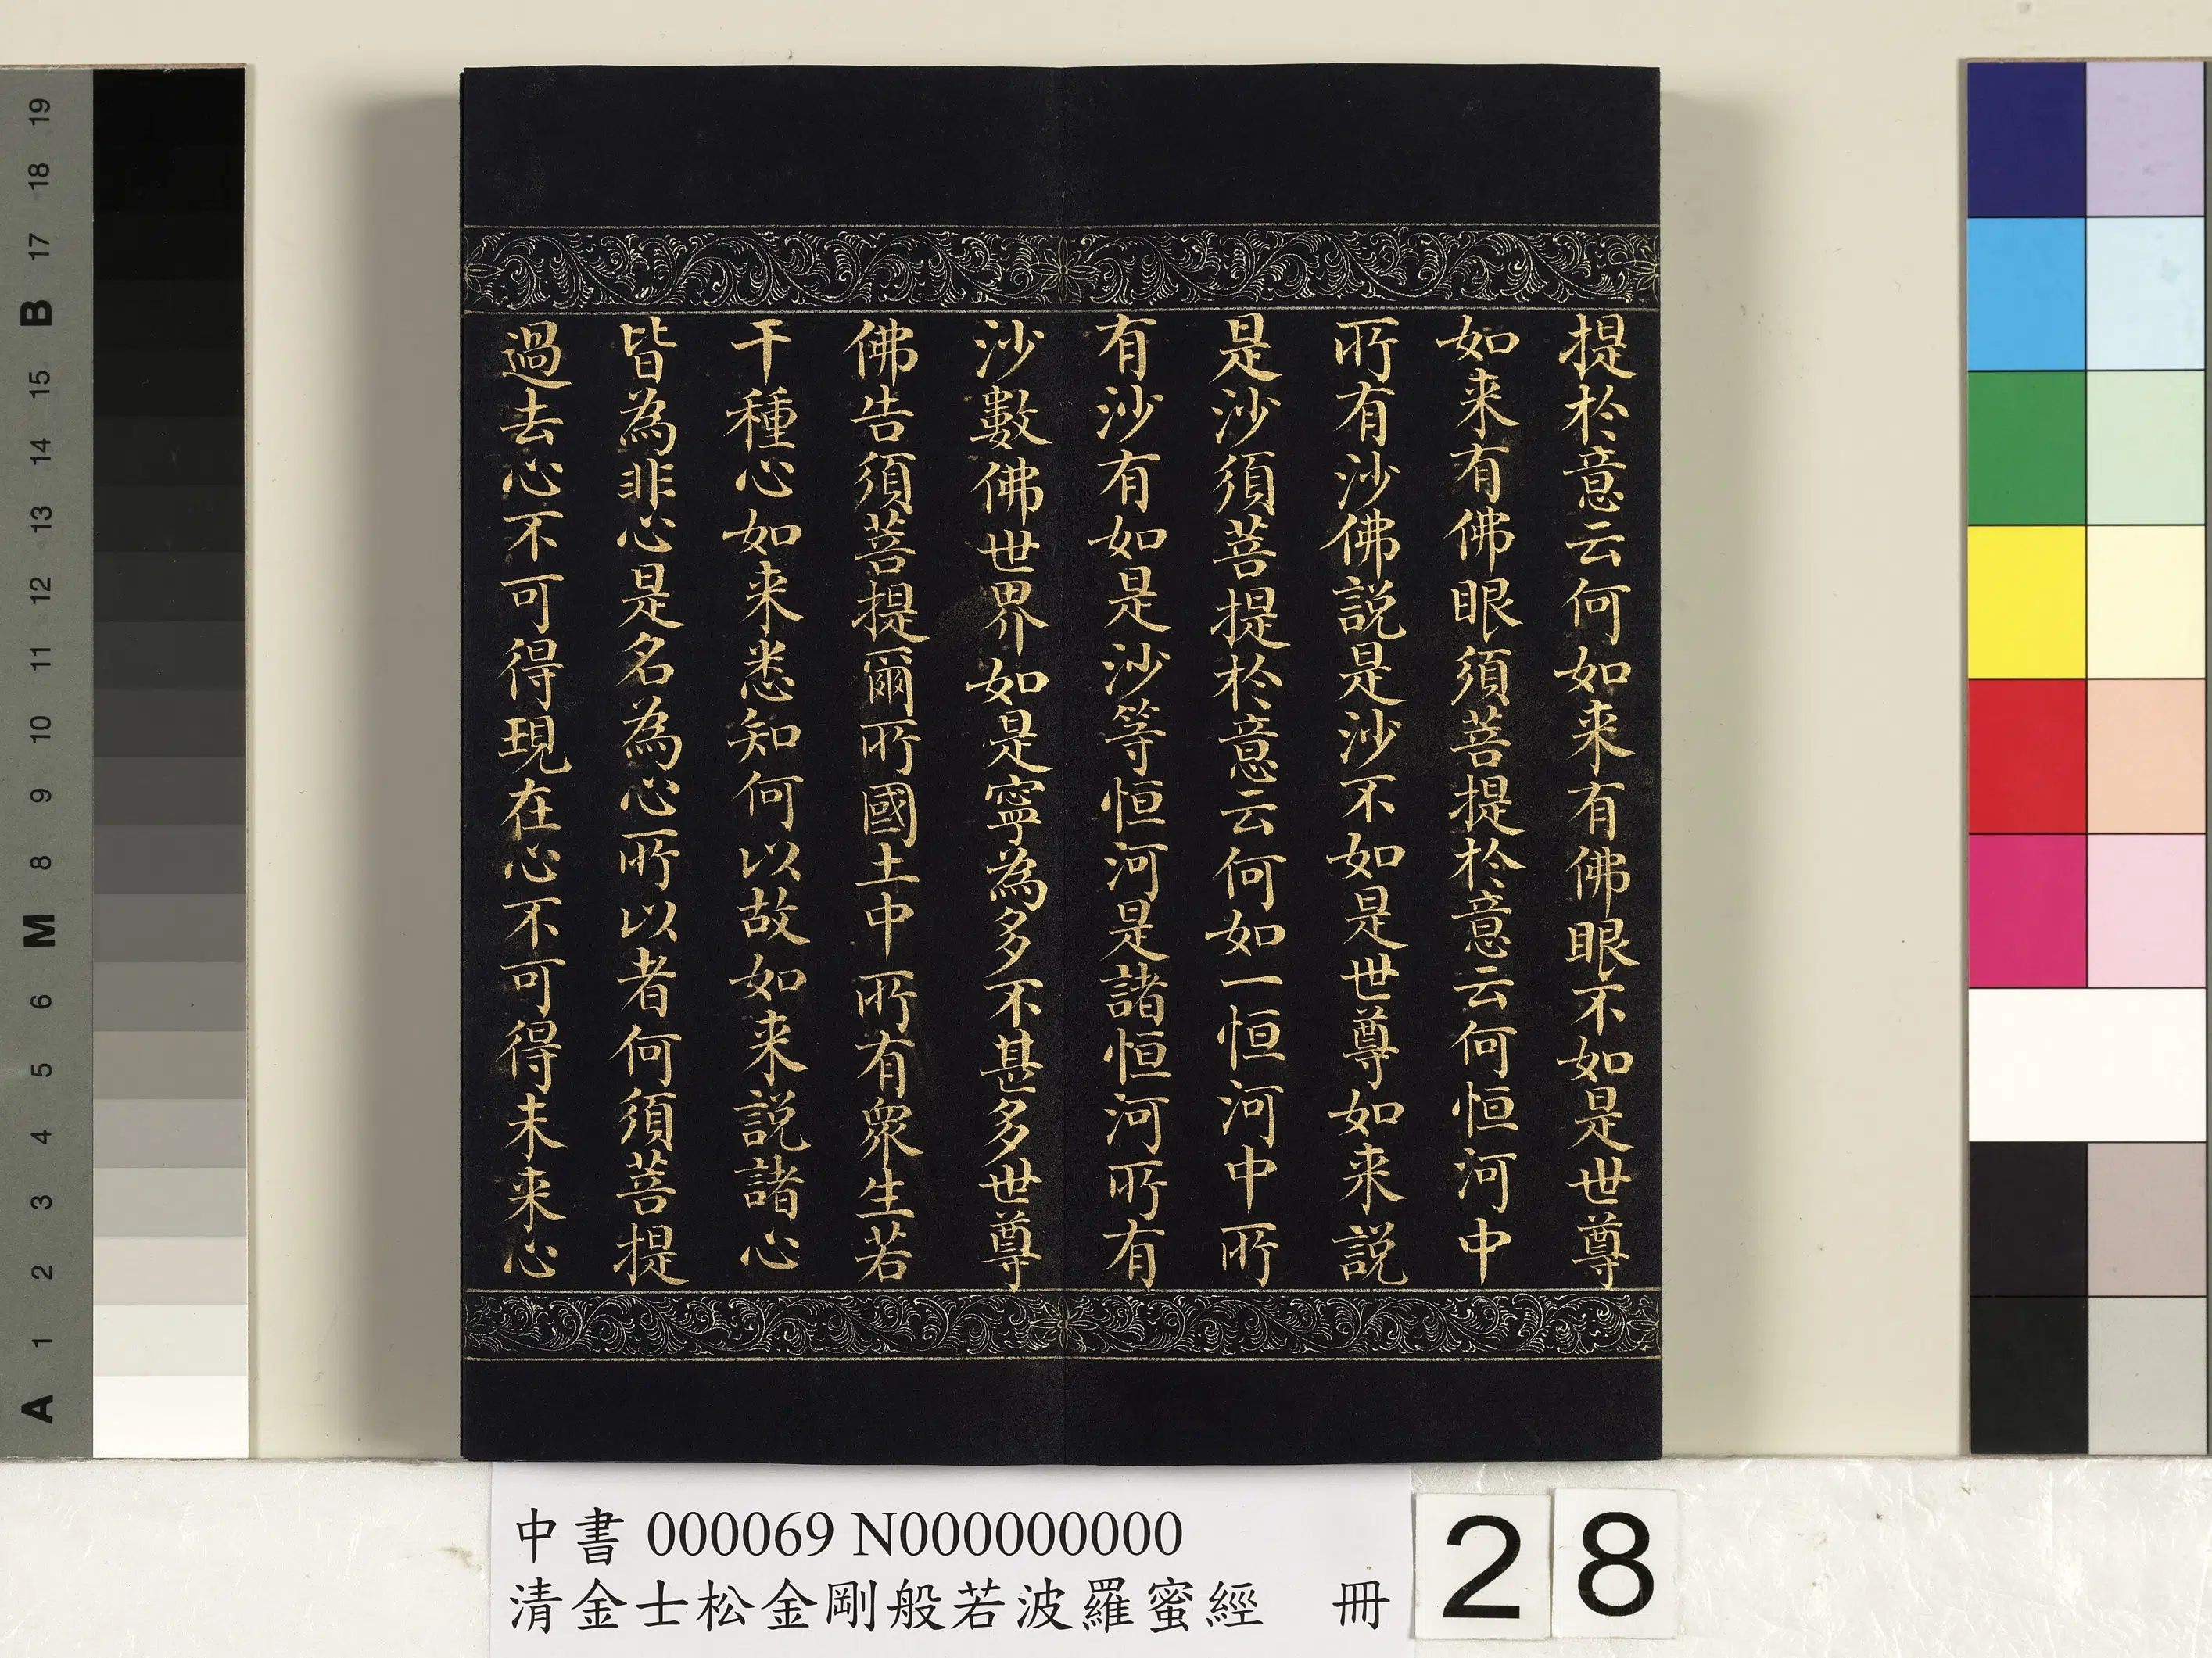 提於意云何如来有佛眼不如是世尊
如来有佛眼須菩提於意云何恒河中
所有沙佛説是沙不如是世尊如来説
是沙須菩提於意云何如一恒河中所
有沙有如是沙等恒河是諸恒河所有
沙數佛世界如是寧為多不甚多世尊
佛告須菩提爾所國土中所有衆生若
干種心如来悉知何以故如来説諸心
皆為非心是名為心所以者何須菩提
過去心不可得現在心不可得未来心
中書 000069 N000000000
清金士松金剛般若波羅蜜經 冊
28
19
18
17
B
15
14
13
12
11
10
9
8
M
6
5
4
3
2
1
A